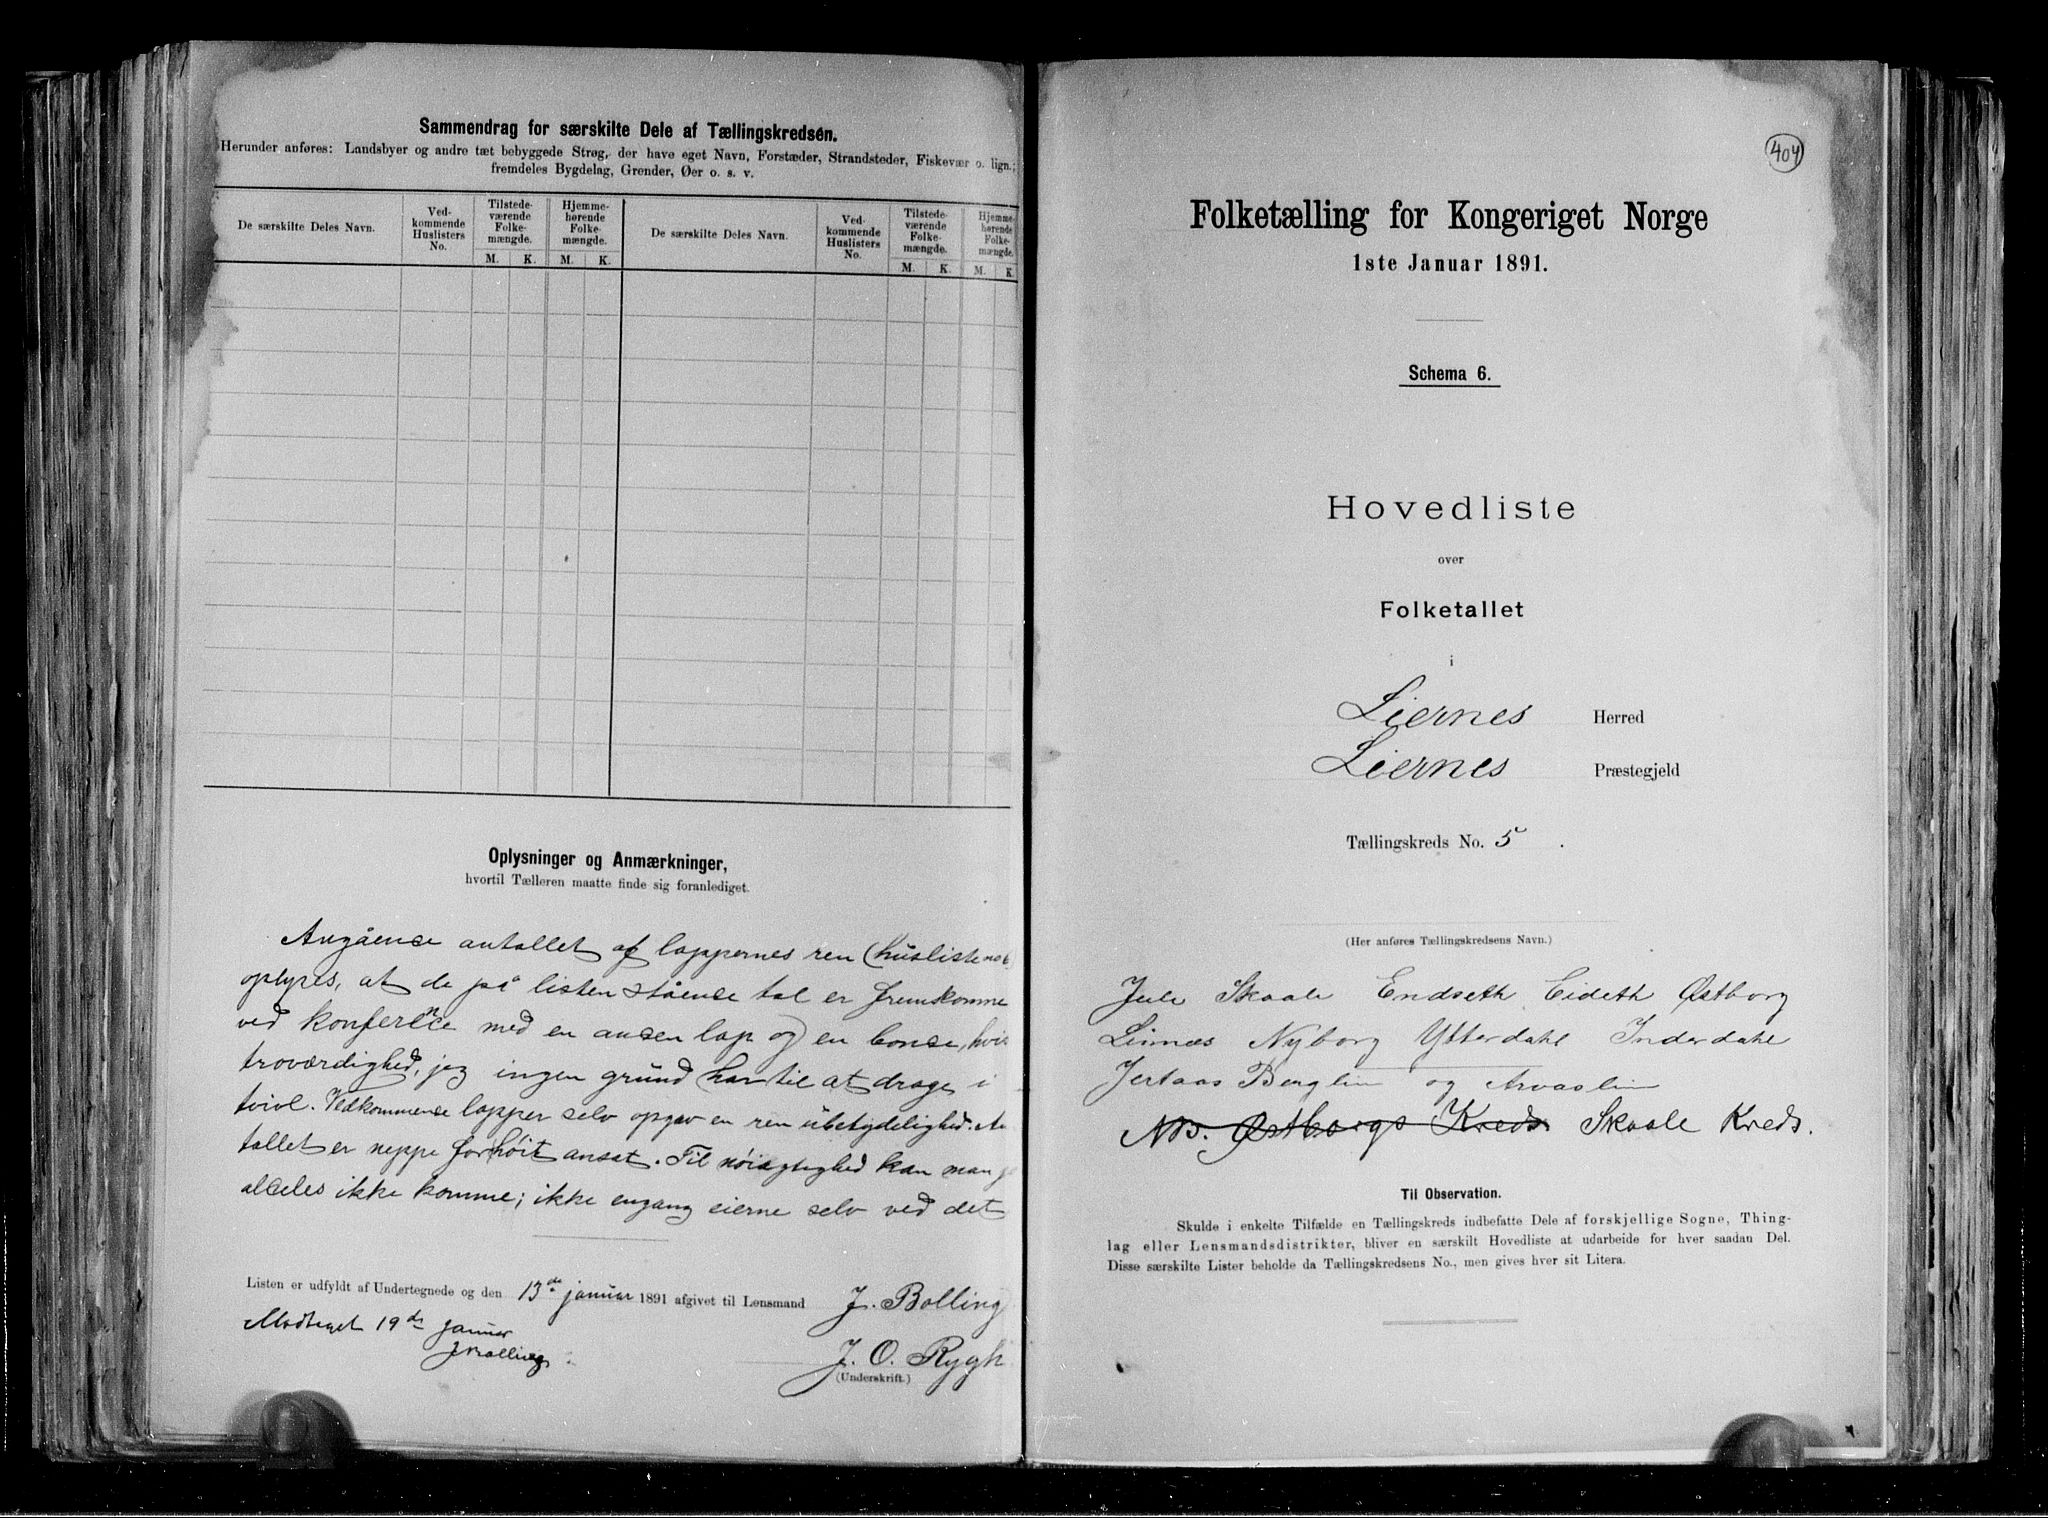 Sammendrag for særskilte Dele af Tællingskredsen.
Herunder anføres: Landsbyer og andre tæt bebyggede Strøg, der have eget Navn, Forstæder, Strandsteder, Fiskevær o. lign.;
fremdeles Bygdelag, Grender, Øer o. s. v.
De særskilte Deles Navn. Ved-kommende Huslisters No. Tilstede-værende Folke-mængde. Hjemme-hørende Folke-mængde. De særskilte Deles Navn. Ved-kommende Huslisters No. Tilstede-værende Folke-mængde. Hjemme-hørende Folke-mængde.
M. K. M. K. M. K. M. K.
Oplysninger og Anmærkninger,
hvortil Tælleren maatte finde sig foranlediget.
Angående antallet af lappernes ren (husliste no 6)
oplyses, at de på listen stående tal er fremkomme
ved konference med en anden lap og en bonde, hvis
troværdighed, jeg ingen grund har til at drage i
tvivl. Vedkommende lapper selv opgav en ren ubetydelighed. An
tallet er neppe for høit ansat. Til nøiagtighed kan man
aldeles ikke komme; ikke engang eierne selv ved det
Listen er udfyldt af Undertegnede og den 13de januar 1891 afgivet til Lensmand J. Bolling
Modtaget 19de januar
JBolling
J. O. Rygh
(Underskrift.)
404
Folketælling for Kongeriget Norge
1ste Januar 1891.
Schema 6.
Hovedliste
over
Folketallet
i
Liernes Herred
Liernes Præstegjeld
Tællingskreds No. 5.
(Her anføres Tællingskredsens Navn.)
Jule Skaale Endseth Eideth Østborg
Linnæs Nyborg Ytterdahl Inderdahl
Jertaas Berglim og Arvaslim
NB. Østborgs Kreds. Skaale Kreds.
Til Observation.
Skulde i enkelte Tilfælde en Tællingskreds indbefatte Dele af forskjellige Sogne, Thing-
lag eller Lensmandsdistrikter, bliver en særskilt Hovedliste at udarbeide for hver saadan Del.
Disse særskilte Lister beholde da Tællingskredsens No., men gives hver sit Litera.